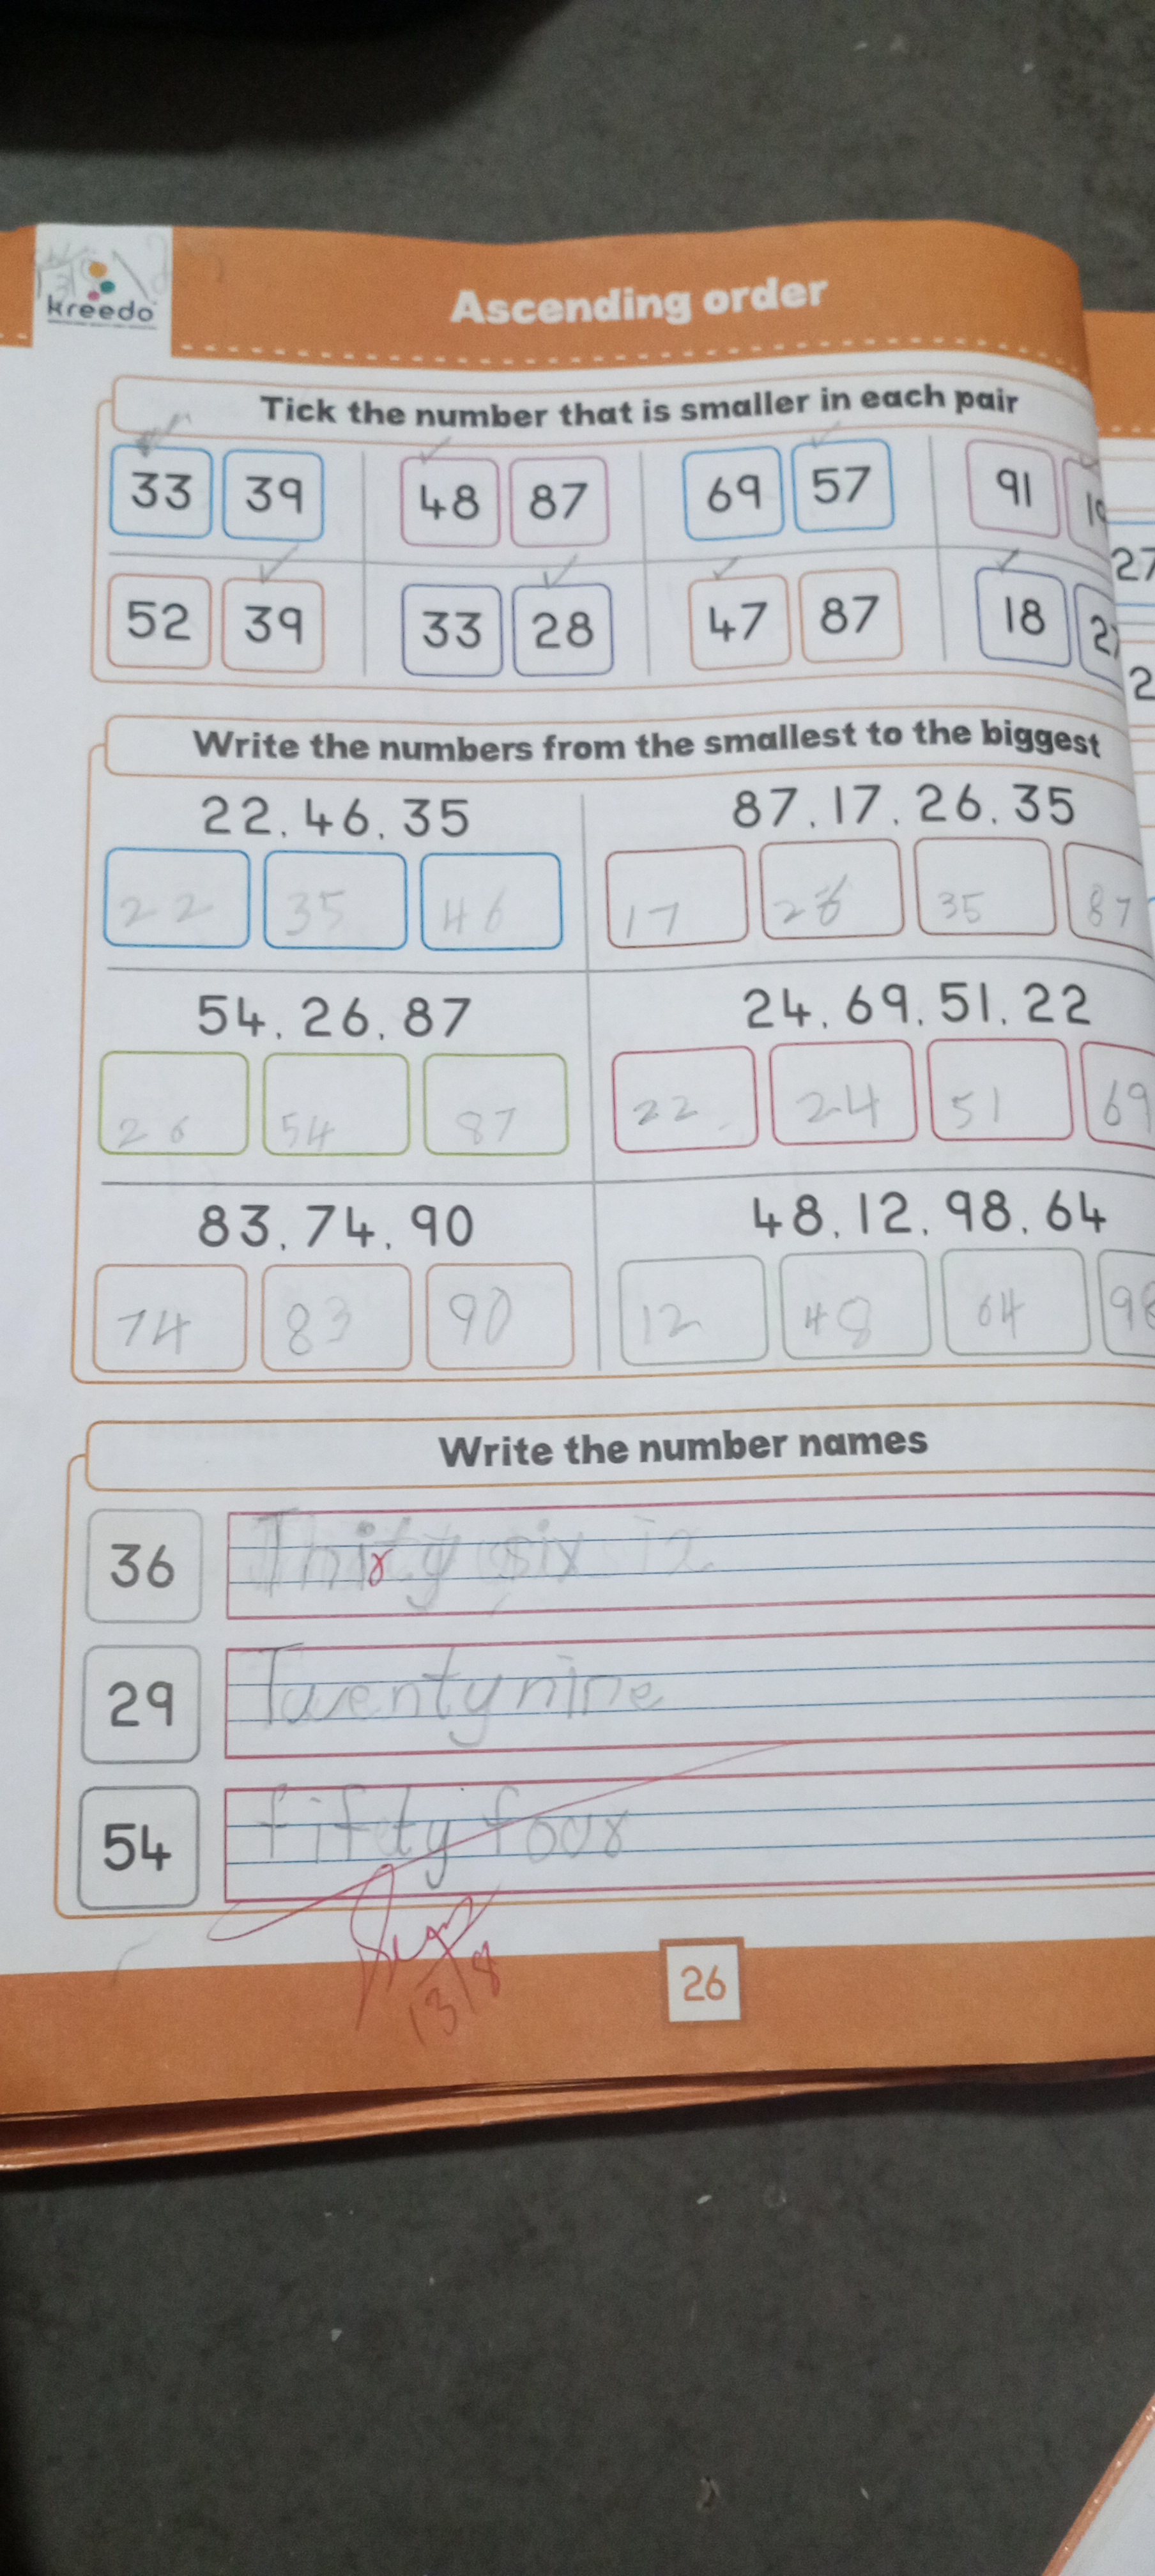 kreedo
Ascending order
Tick the number that is smaller in each pair
33 39 48 87 69 57 91
52 39 33 28 47 87 18
27
2
Write the numbers from the smallest to the biggest
22, 46, 35 87, 17, 26, 35
22 35 46 17 26 35 87
54, 26, 87 24, 69, 51, 22
26 54 87 22 24 51 69
83, 74, 90 48, 12, 98, 64
74 83 90 12 48 64 98
Write the number names
36 Thirty six
29 Twenty nine
54 fifty four
13/8
26